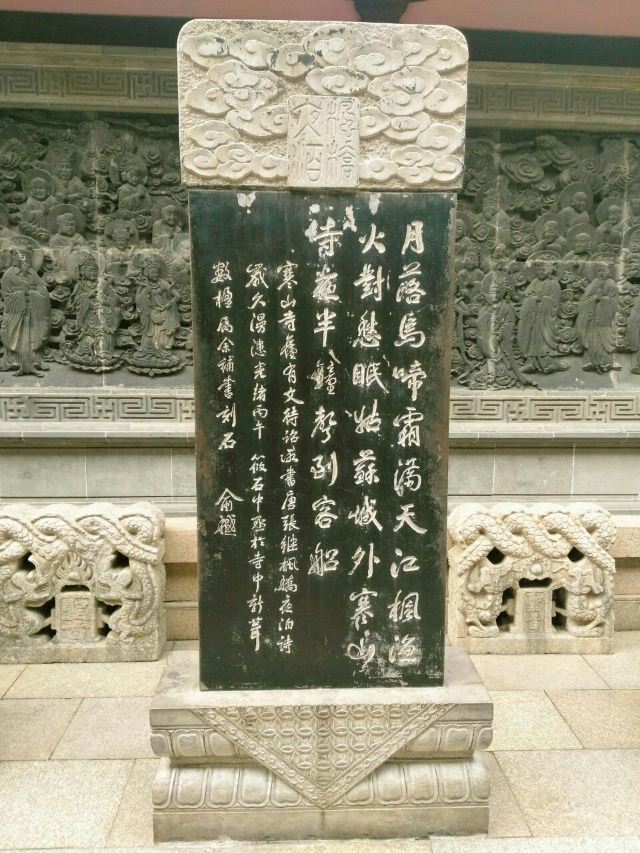 楓橋
夜泊
月落烏啼霜滿天江楓漁
火對愁眠姑蘇城外寒山
寺夜半鐘聲到客船
寒山寺舊有文待詔所書唐張繼楓橋夜泊詩
歲久漫漶光緒丙午筱石中丞於寺中新葺
數楹屬余補書刻石 俞樾